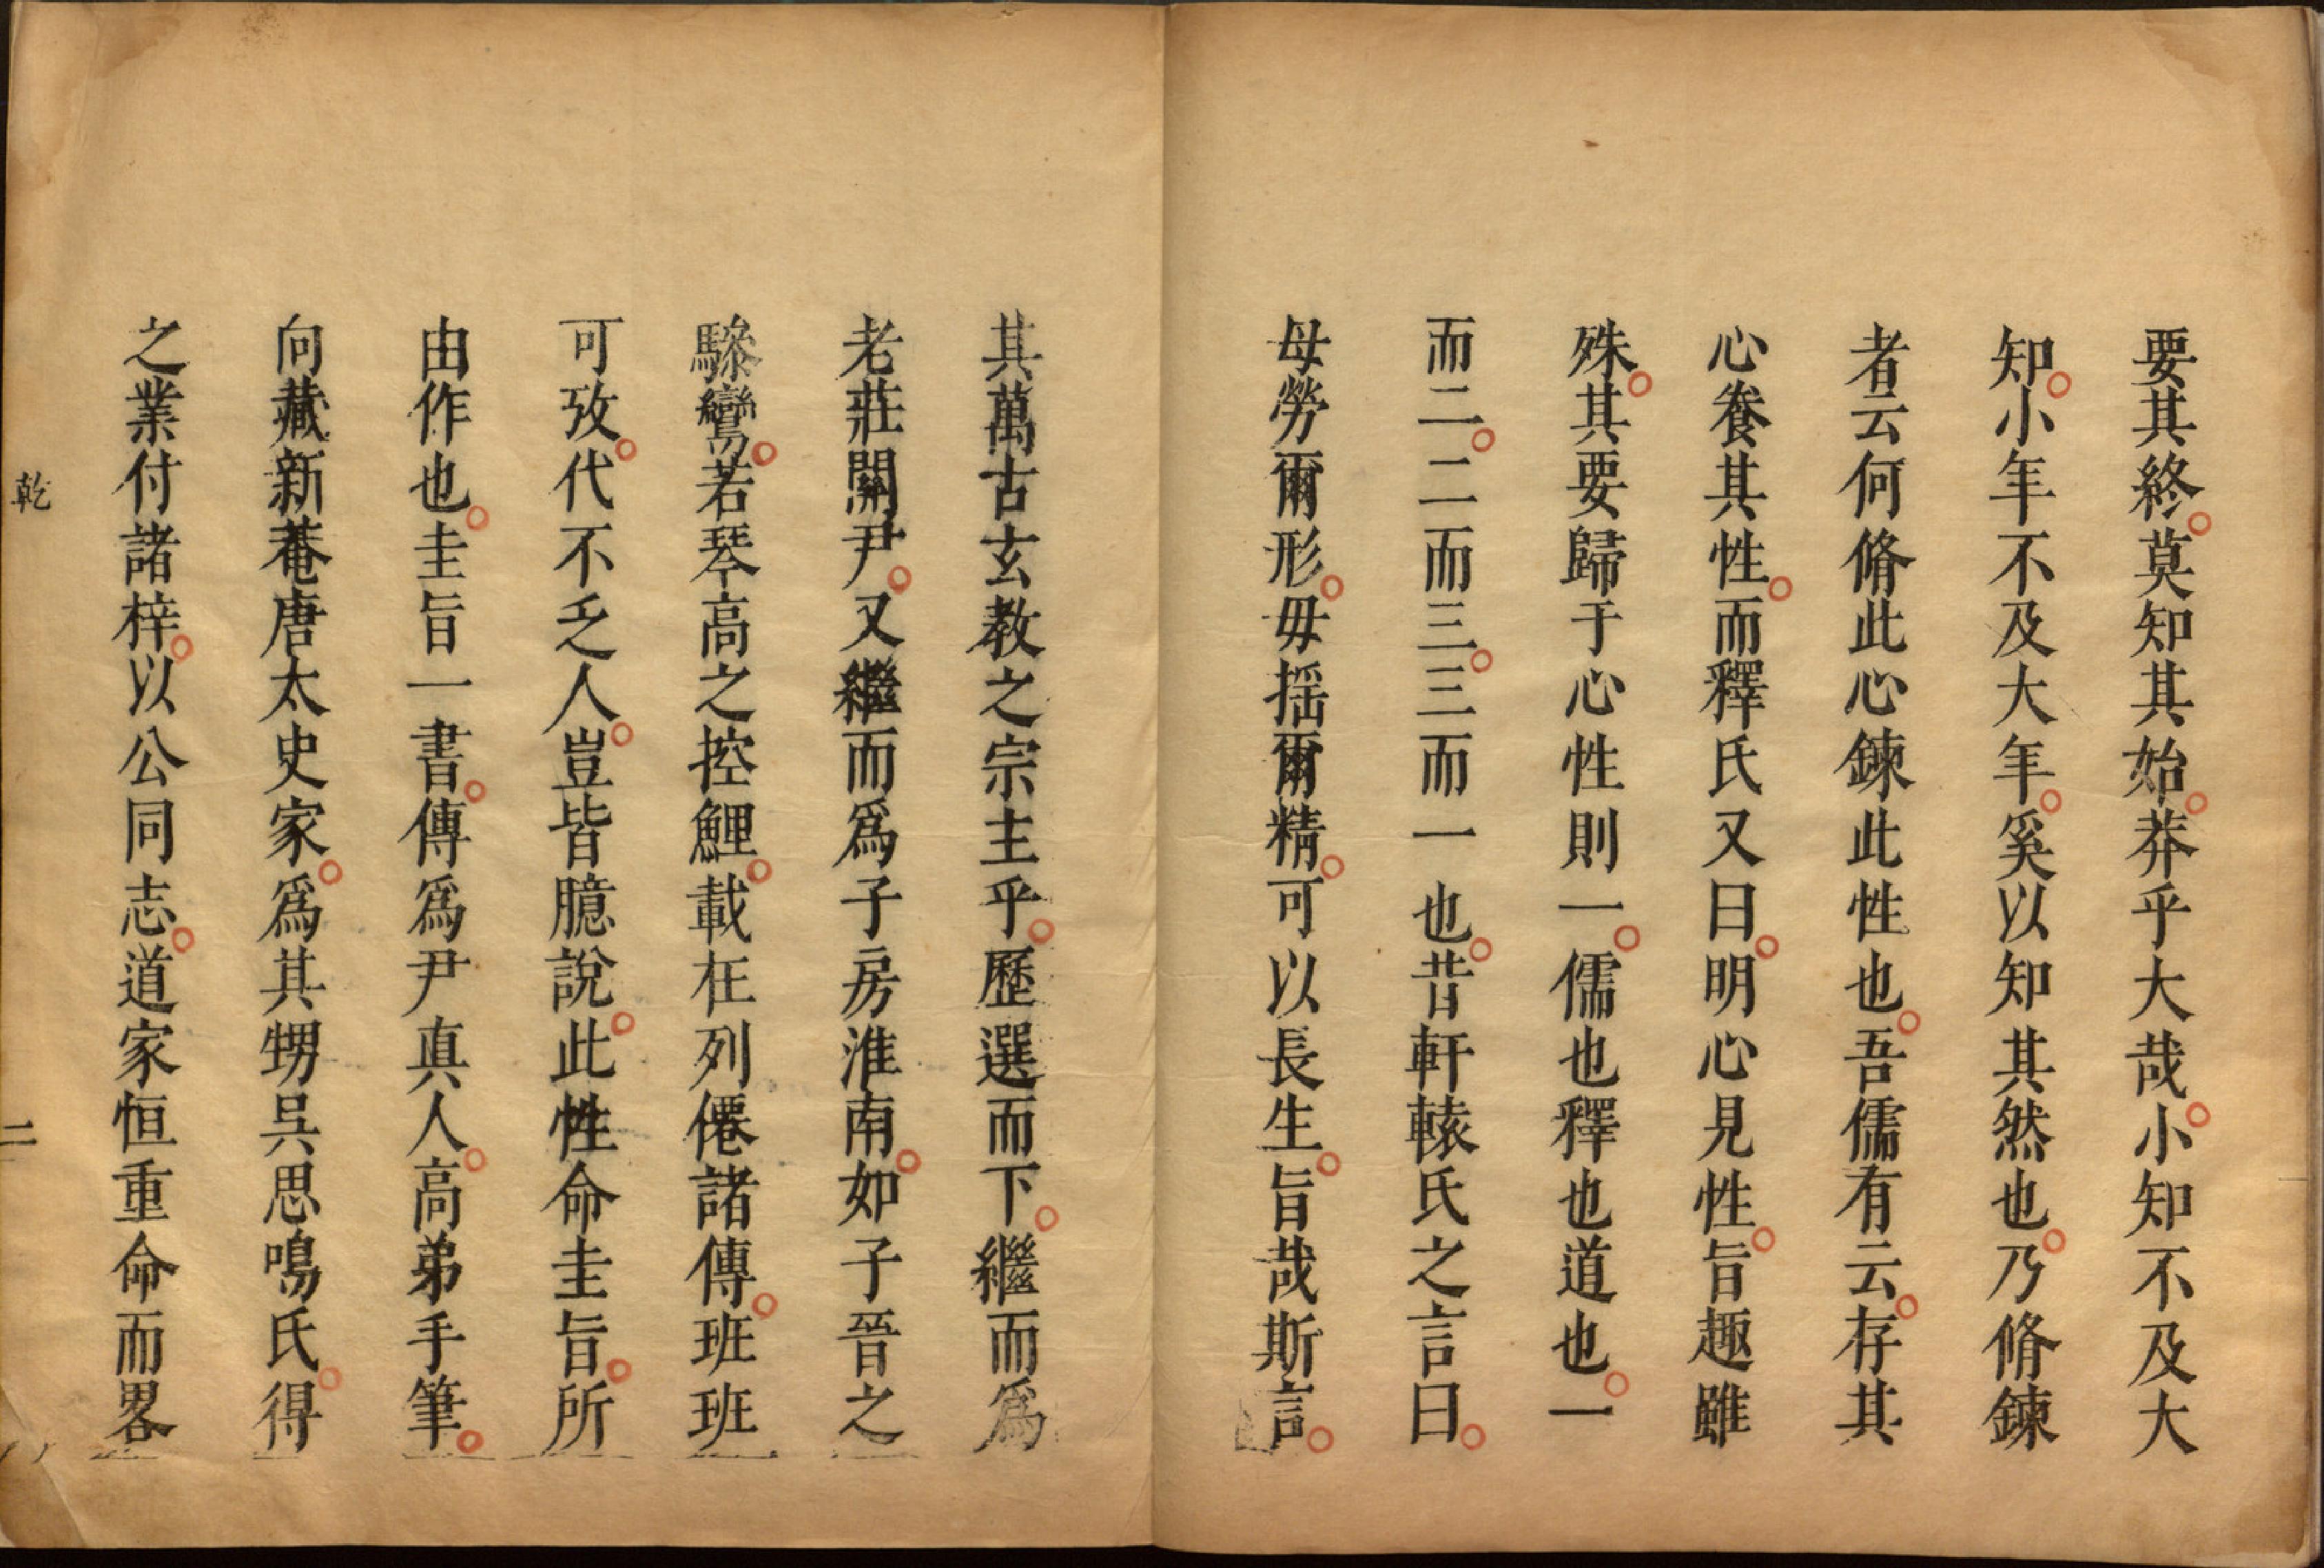 要其終莫知其始莽乎大哉小知不及大
知小年不及大年奚以知其然也乃脩鍊
者云何脩此心鍊此性也吾儒有云存其
心養其性而釋氏又曰明心見性旨趣雖
殊其要歸于心性則一儒也釋也道也一
而二二而三三而一也昔軒轅氏之言曰
母勞爾形毋揺爾精可以長生旨哉斯言
其萬古玄教之宗主乎歷選而下繼而為
老莊關尹又繼而為子房淮南如子晉之
驂鸞若琴高之控鯉載在列僊諸傳班班
可攷代不乏人豈皆臆說此性命圭旨所
由作也圭旨一書傳為尹真人高弟手筆
向藏新菴唐太史家為其甥吳思鳴氏得
之業付諸梓以公同志道家恒重命而畧
乾
二